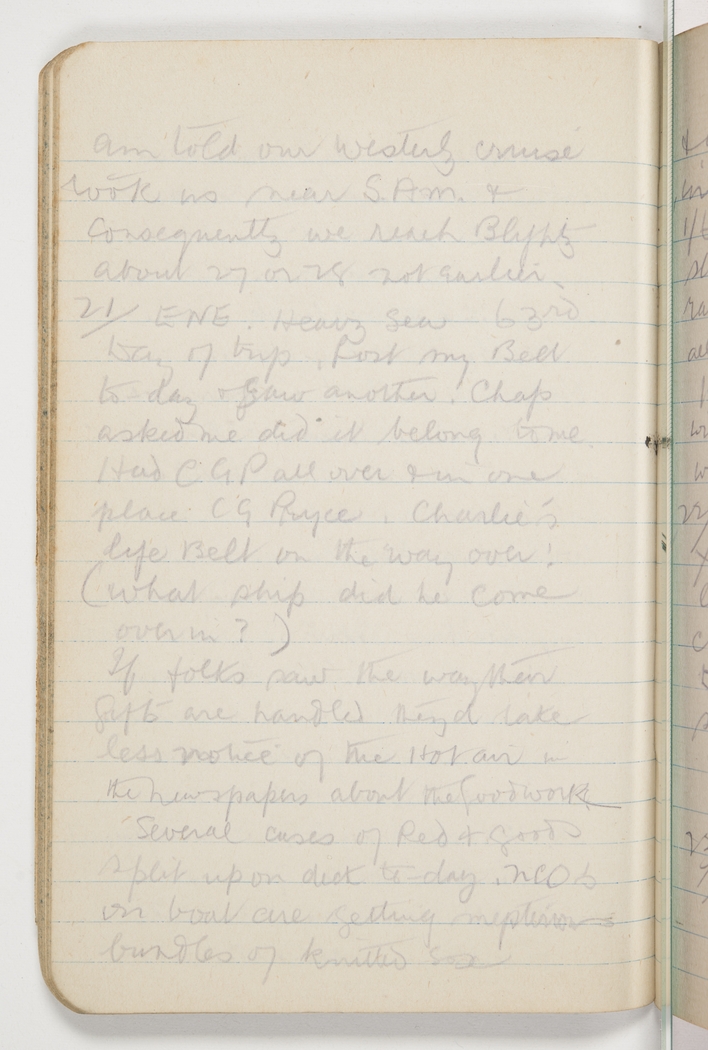 am told our westerly cruise
took us near S. Am. &
Consequently we reach Blyhty
about 27 or 28 not earlier.
21/ ENE. Heavy Sea 63rd
Day of trip. Lost my Belt
to-day & saw another. Chap
asked me did it belong to me
Had C G P all over & in one
place C G Pryce. Charlie's
life Belt on the way over!
(what ship did he come
over in?)
If folks saw the way their
gifts are handled they'd take
less notice of the Hot air in
the newspapers about the good work
Several cases of Red + goods
split up on deck to-day. NCOs
on boat are getting
bundles of knitted Sox